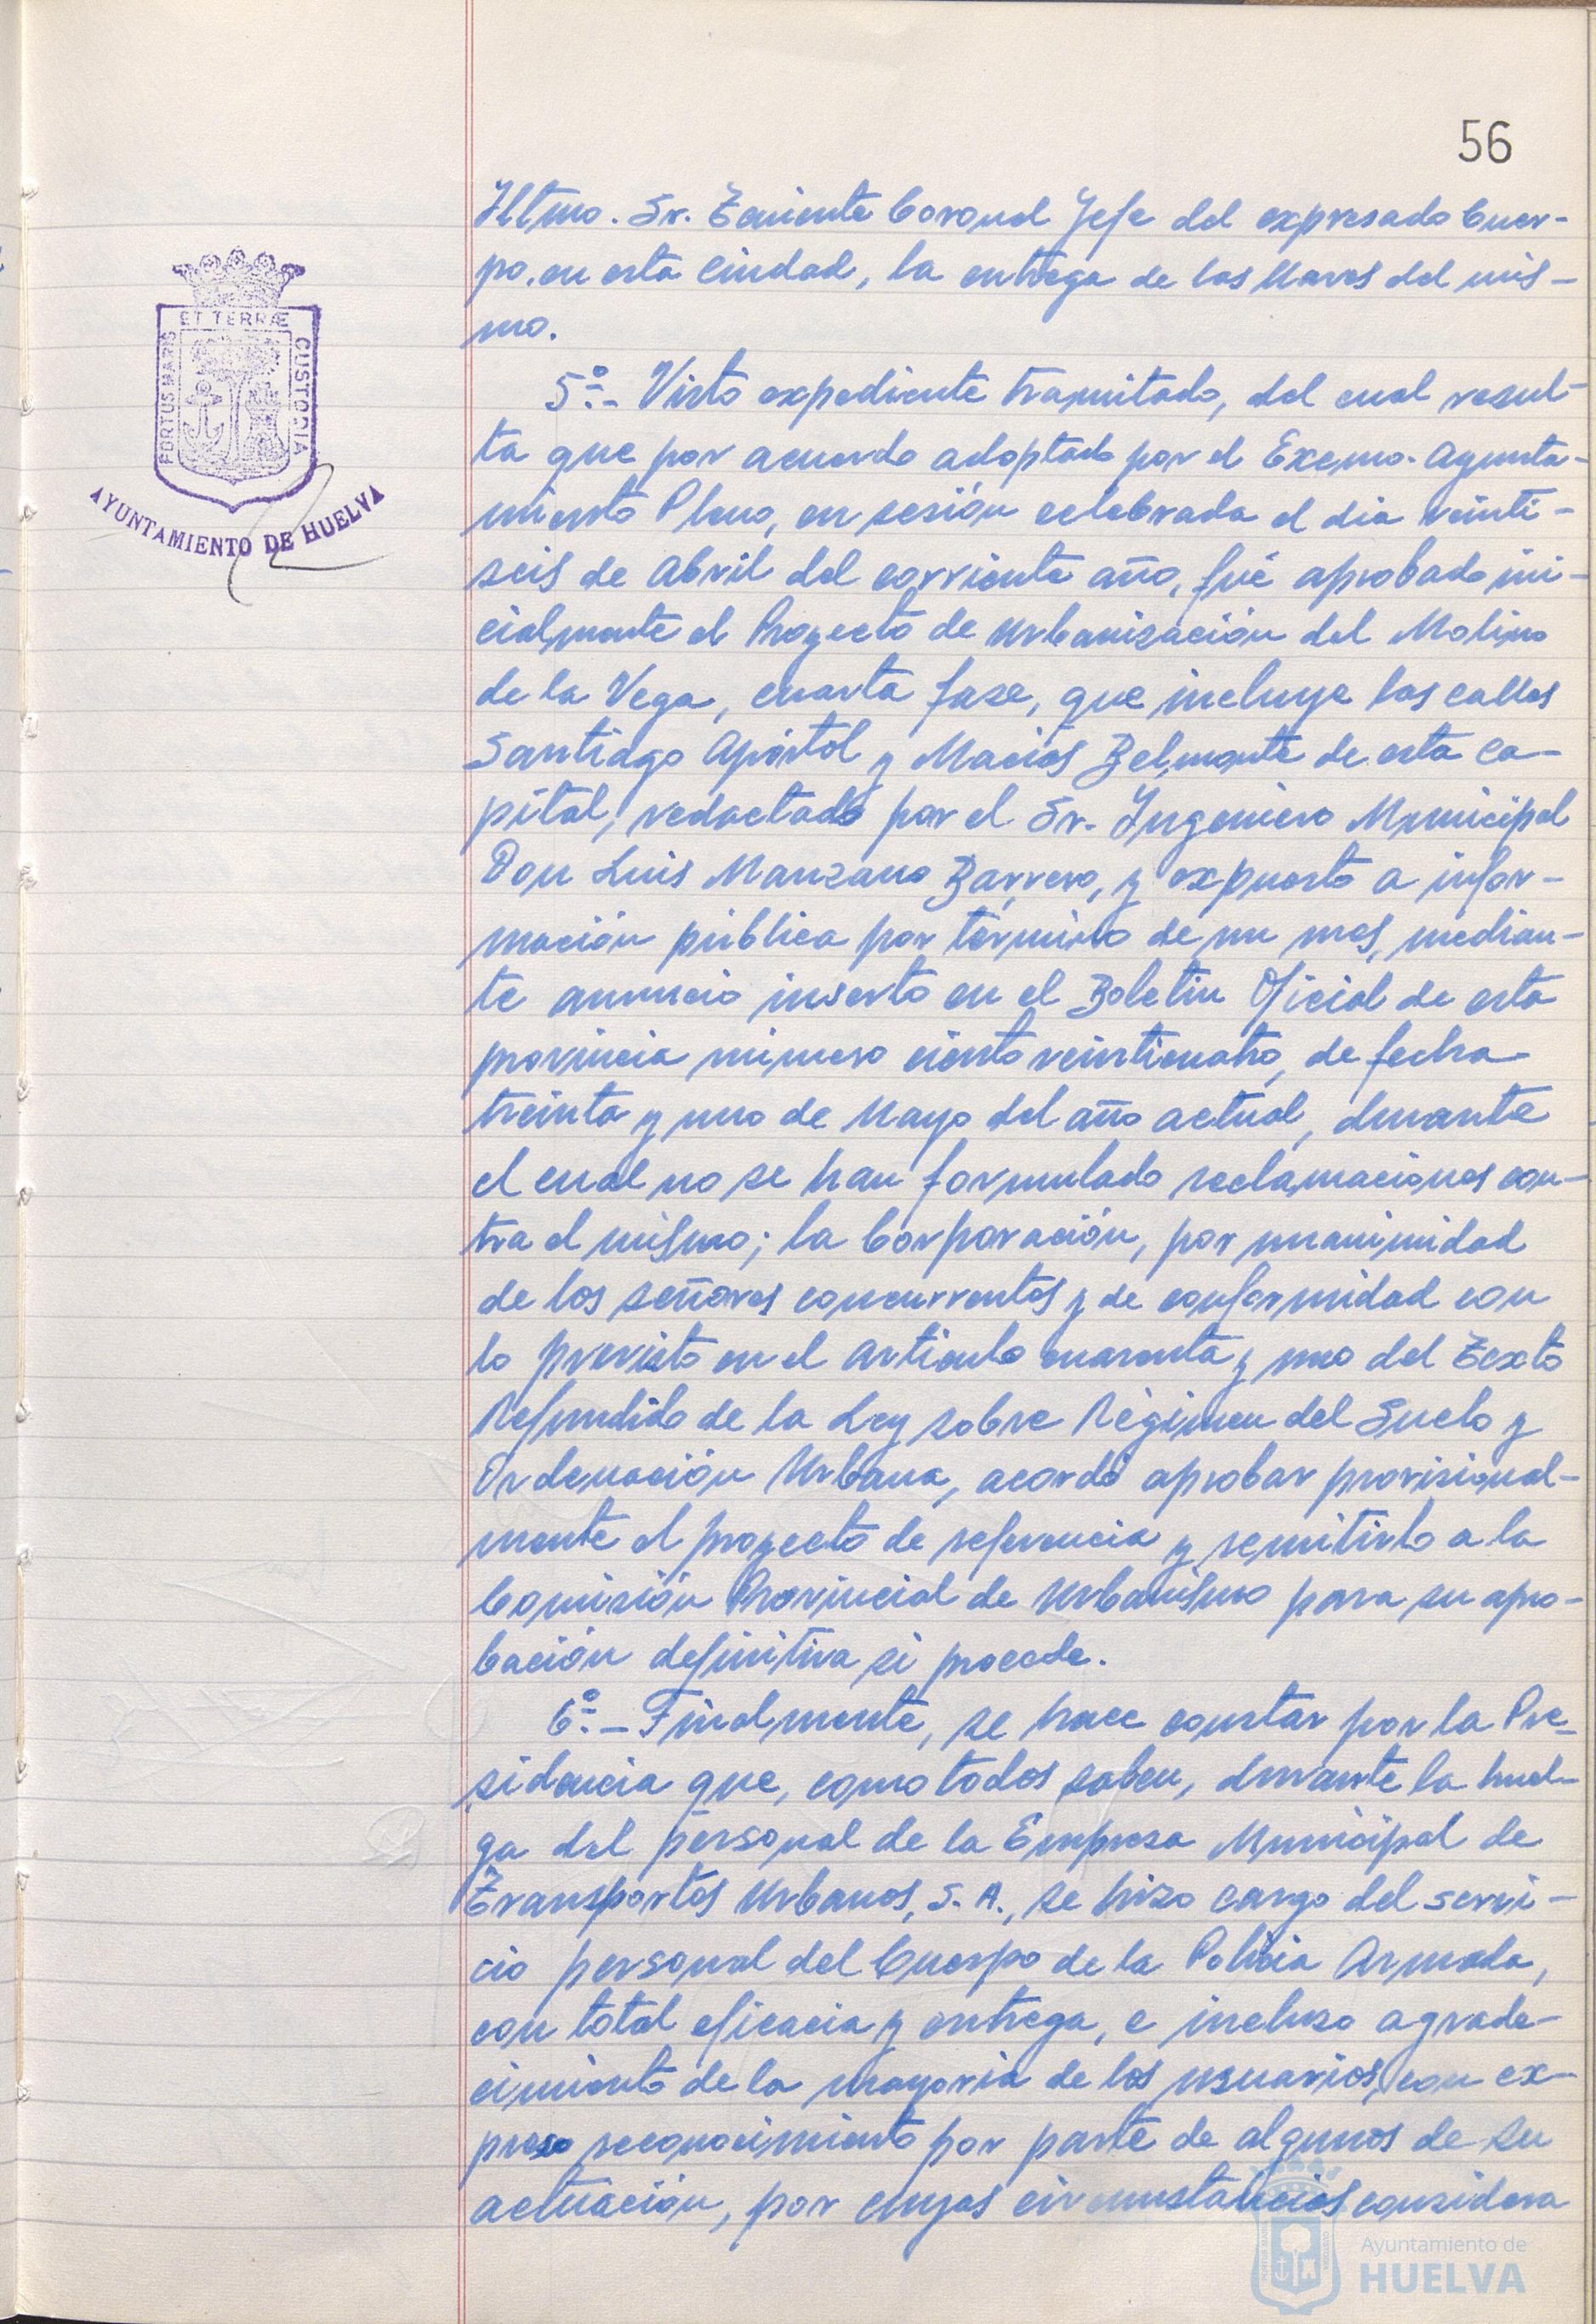 56
Iltmo. Sr. Teniente Coronel Jefe del expresado Cuer-
po, en esta Ciudad, la entrega de las llaves del mis-
mo.
5º.- Visto expediente tramitado, del cual resul-
ta que por acuerdo adoptado por el Excmo. Ayunta-
miento Pleno, en sesión celebrada el dia veinti-
seis de Abril del corriente año, fué aprobado ini-
cialmente el Proyecto de Urbanización del Molino
de la Vega, cuarta fase, que incluye las calles
Santiago Apóstol y Macías Belmonte de esta Ca-
pital, redactado por el Sr. Ingeniero Municipal
Don Luis Manzano Barrero, y expuesto a infor-
mación pública por término de un mes, median-
te anuncio inserto en el Boletin Oficial de esta
provincia número ciento veinticuatro, de fecha
treinta y uno de Mayo del año actual, durante
el cual no se han formulado reclamaciones con-
tra el mismo; la Corporación, por unanimidad
de los señores concurrentes y de conformidad con
lo previsto en el articulo cuarenta y uno del Texto
Refundido de la Ley sobre Régimen del Suelo y
Ordenación Urbana, acordó aprobar provisional-
mente el proyecto de referencia y remitirlo a la
Comisión Provincial de Urbanismo para su apro-
bación definitiva si procede.
6º.- Finalmente, se hace constar por la Pre-
sidencia que, como todos saben, durante la huel-
ga del personal de la Empresa Municipal de
Transportes Urbanos, S.A., se hizo cargo del servi-
cio personal del Cuerpo de la Policia Armada,
con total eficacia y entrega, e incluso agrade-
cimiento de la mayoria de los usuarios, con ex-
preso reconocimiento por parte de algunos de su
actuación, por cuyas circunstancias considera
PORTUS MARIS ET TERRÆ CUSTODIA
AYUNTAMIENTO DE HUELVA
Ayuntamiento de
HUELVA